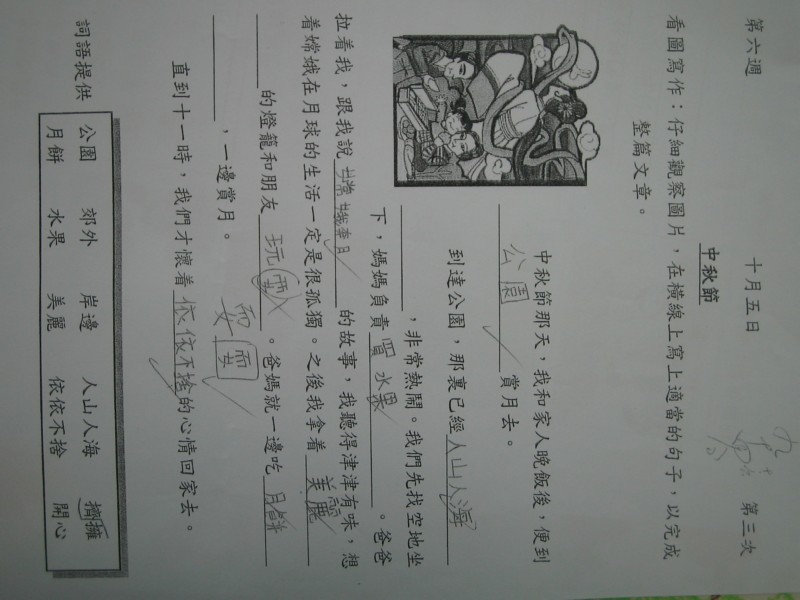 第六週 十月五日 第三次
看圖寫作：仔細觀察圖片，在橫線上寫上適當的句子，以完成
整篇文章。
中秋節
中秋節那天，我和家人晚飯後，便到
公園 賞月去。
到達公園，那裏已經人山人海
，非常熱鬧。我們先找空地坐
下，媽媽負責 水果 。爸爸
拉着我，跟我說嫦娥奔月 的故事，我聽得津津有味，想
着嫦娥在月球的生活一定是很孤獨。之後我拿着 美麗
的燈籠和朋友 玩耍 。爸媽就一邊吃 月餅
，一邊賞月。
直到十一時，我們才懷着依依不捨的心情回家去。
詞語提供
公園 郊外 岸邊 人山人海 擠擁
月餅 水果 美麗 依依不捨 開心